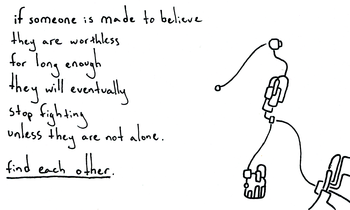 if someone is made to believe
they are worthless
for long enough
they will eventually
stop fighting
unless they are not alone.
find each other.